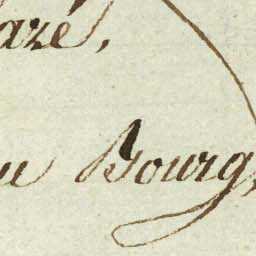 azé,
u Bourg,